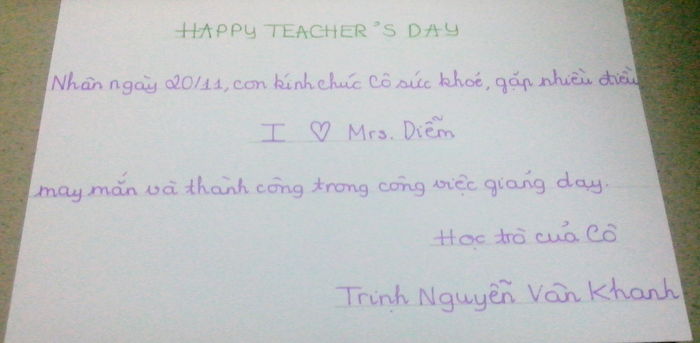 HAPPY TEACHER'S DAY
Nhân ngày 20/11, con kính chúc Cô sức khoẻ, gặp nhiều điều
I ♡ Mrs. Diễm
may mắn và thành công trong công việc giảng dạy.
Học trò của Cô
Trịnh Nguyễn Vân Khanh